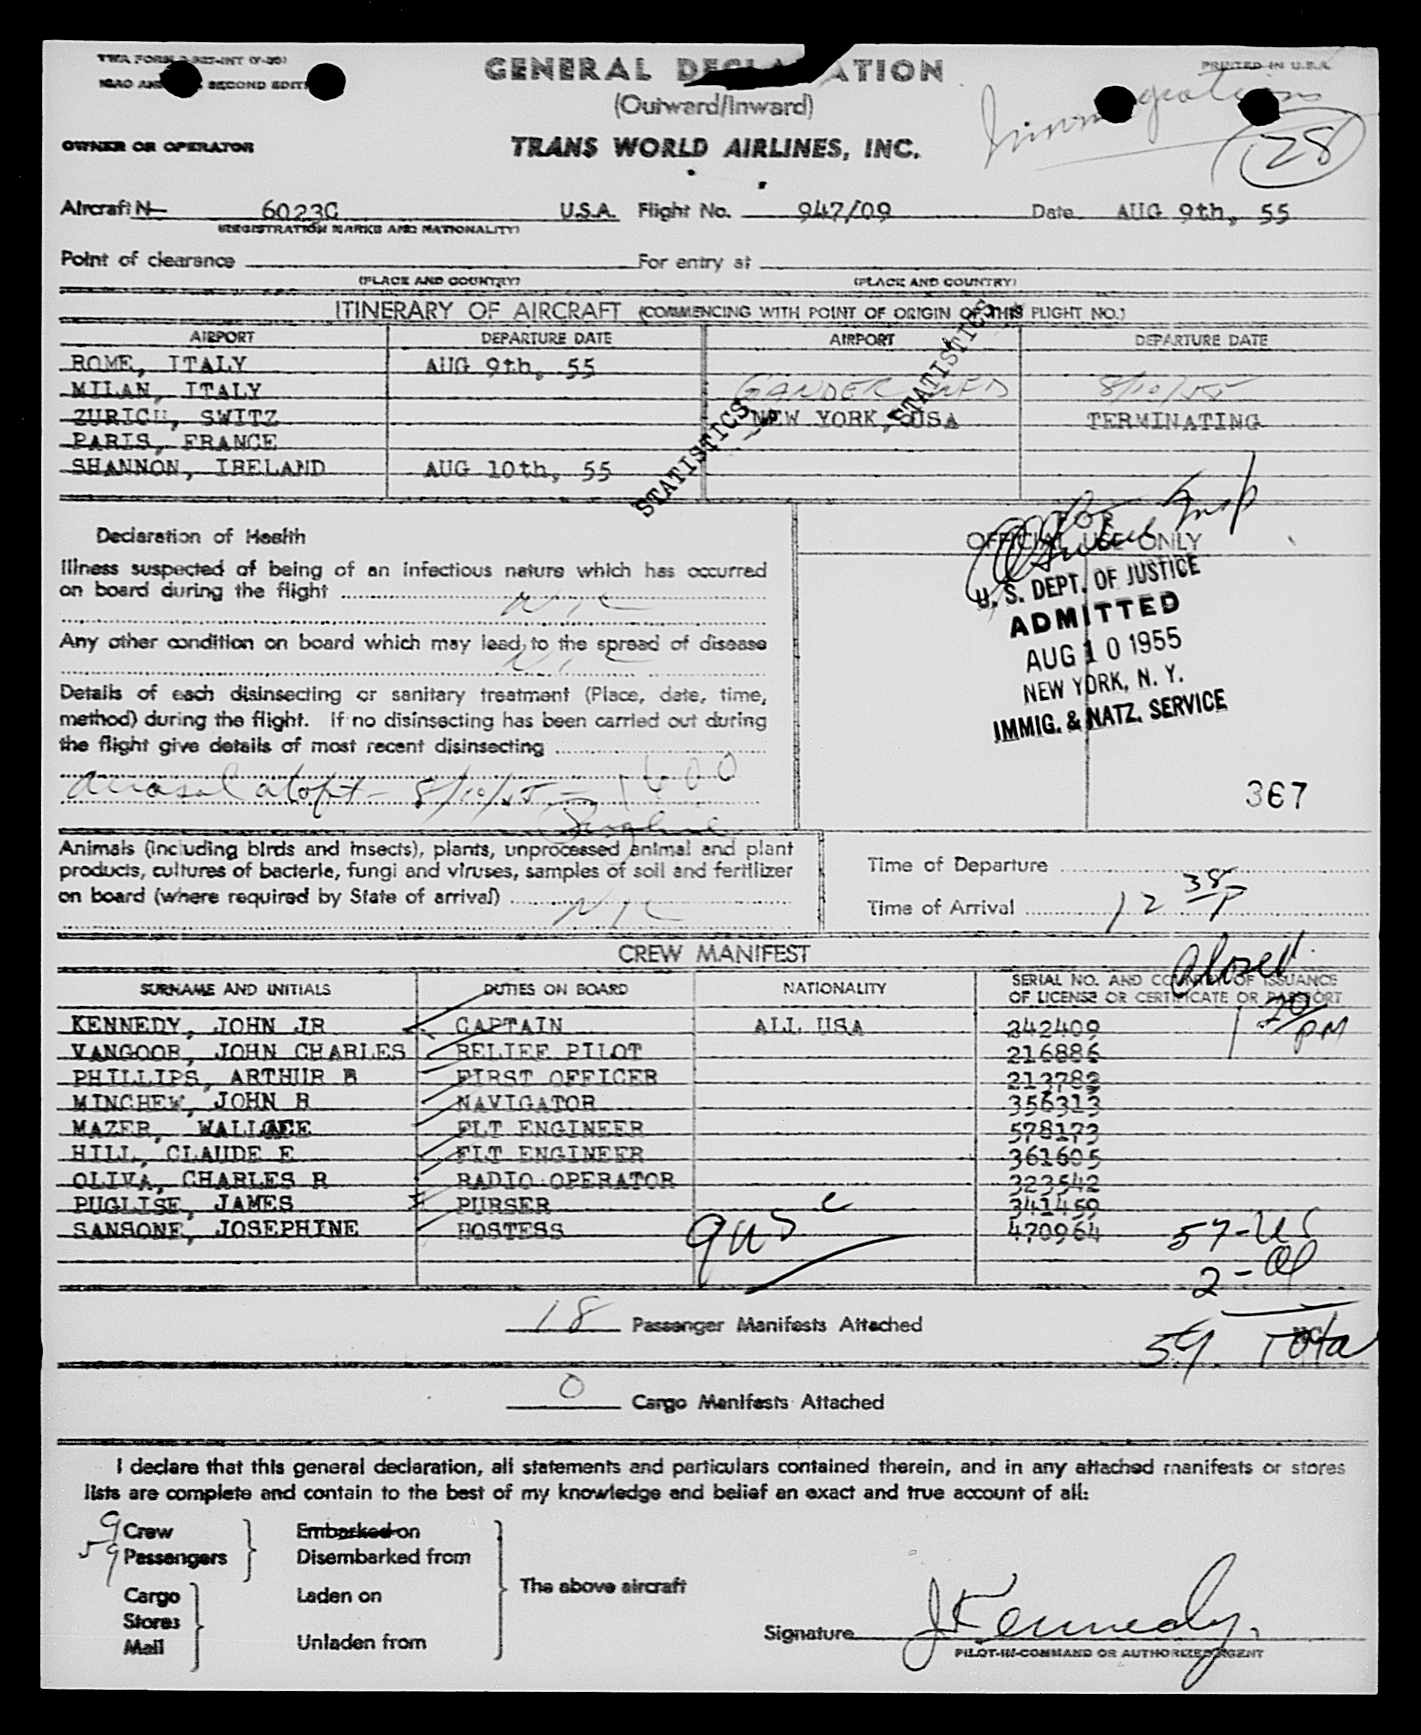 TWA FORM
SECOND EDIT
GENERAL DECLARATION
PRINTED IN U.S.A.
(Outward/Inward)
Immigration
28
OWNER OR OPERATOR
TRANS WORLD AIRLINES, INC.
Aircraft N- 6023C U.S.A. Flight No. 947/09 Date AUG 9th, 55
(REGISTRATION MARKS AND NATIONALITY)
Point of clearance For entry at
(PLACE AND COUNTRY) (PLACE AND COUNTRY)
ITINERARY OF AIRCRAFT (COMMENCING WITH POINT OF ORIGIN OF THIS FLIGHT NO.)
AIRPORT DEPARTURE DATE AIRPORT DEPARTURE DATE
ROME, ITALY AUG 9th, 55
MILAN, ITALY GANDER NFD 8/10/55
ZURICH, SWITZ NEW YORK, USA TERMINATING
PARIS, FRANCE
SHANNON, IRELAND AUG 10th, 55
STATISTICS
STATISTICS
Declaration of Health
FOR
OFFICIAL USE ONLY
Illness suspected of being of an infectious nature which has occurred
on board during the flight NIL
Any other condition on board which may lead to the spread of disease
NIL
Details of each disinsecting or sanitary treatment (Place, date, time,
method) during the flight. If no disinsecting has been carried out during
the flight give details of most recent disinsecting
8/10/55 - 1600
U. S. DEPT. OF JUSTICE
ADMITTED
AUG 10 1955
NEW YORK, N. Y.
IMMIG. & NATZ. SERVICE
367
Animals (including birds and insects), plants, unprocessed animal and plant
products, cultures of bacteria, fungi and viruses, samples of soil and fertilizer
on board (where required by State of arrival) NIL
Time of Departure
Time of Arrival 12 38 P
Closed
1 20 PM
CREW MANIFEST
SURNAME AND INITIALS DUTIES ON BOARD NATIONALITY SERIAL NO. AND COUNTRY OF ISSUANCE
OF LICENSE OR CERTIFICATE OR PASSPORT
KENNEDY, JOHN JR CAPTAIN ALL USA 242409
VANGOOR, JOHN CHARLES RELIEF PILOT 216886
PHILLIPS, ARTHUR B FIRST OFFICER 213782
MINCHEW, JOHN R NAVIGATOR 356313
MAZER, WALLACE FLT ENGINEER 578173
HILL, CLAUDE E FLT ENGINEER 361605
OLIVA, CHARLES R RADIO OPERATOR 323542
PUGLISE, JAMES PURSER 341459
SANSONE, JOSEPHINE HOSTESS 470964
9 US C
57 - US
2 - Al
59 Total
18 Passenger Manifests Attached
0 Cargo Manifests Attached
I declare that this general declaration, all statements and particulars contained therein, and in any attached manifests or stores
lists are complete and contain to the best of my knowledge and belief an exact and true account of all:
9 Crew Embarked on
59 Passengers Disembarked from
The above aircraft
Cargo Laden on
Stores
Mail Unladen from
Signature J Kennedy
PILOT-IN-COMMAND OR AUTHORIZED AGENT